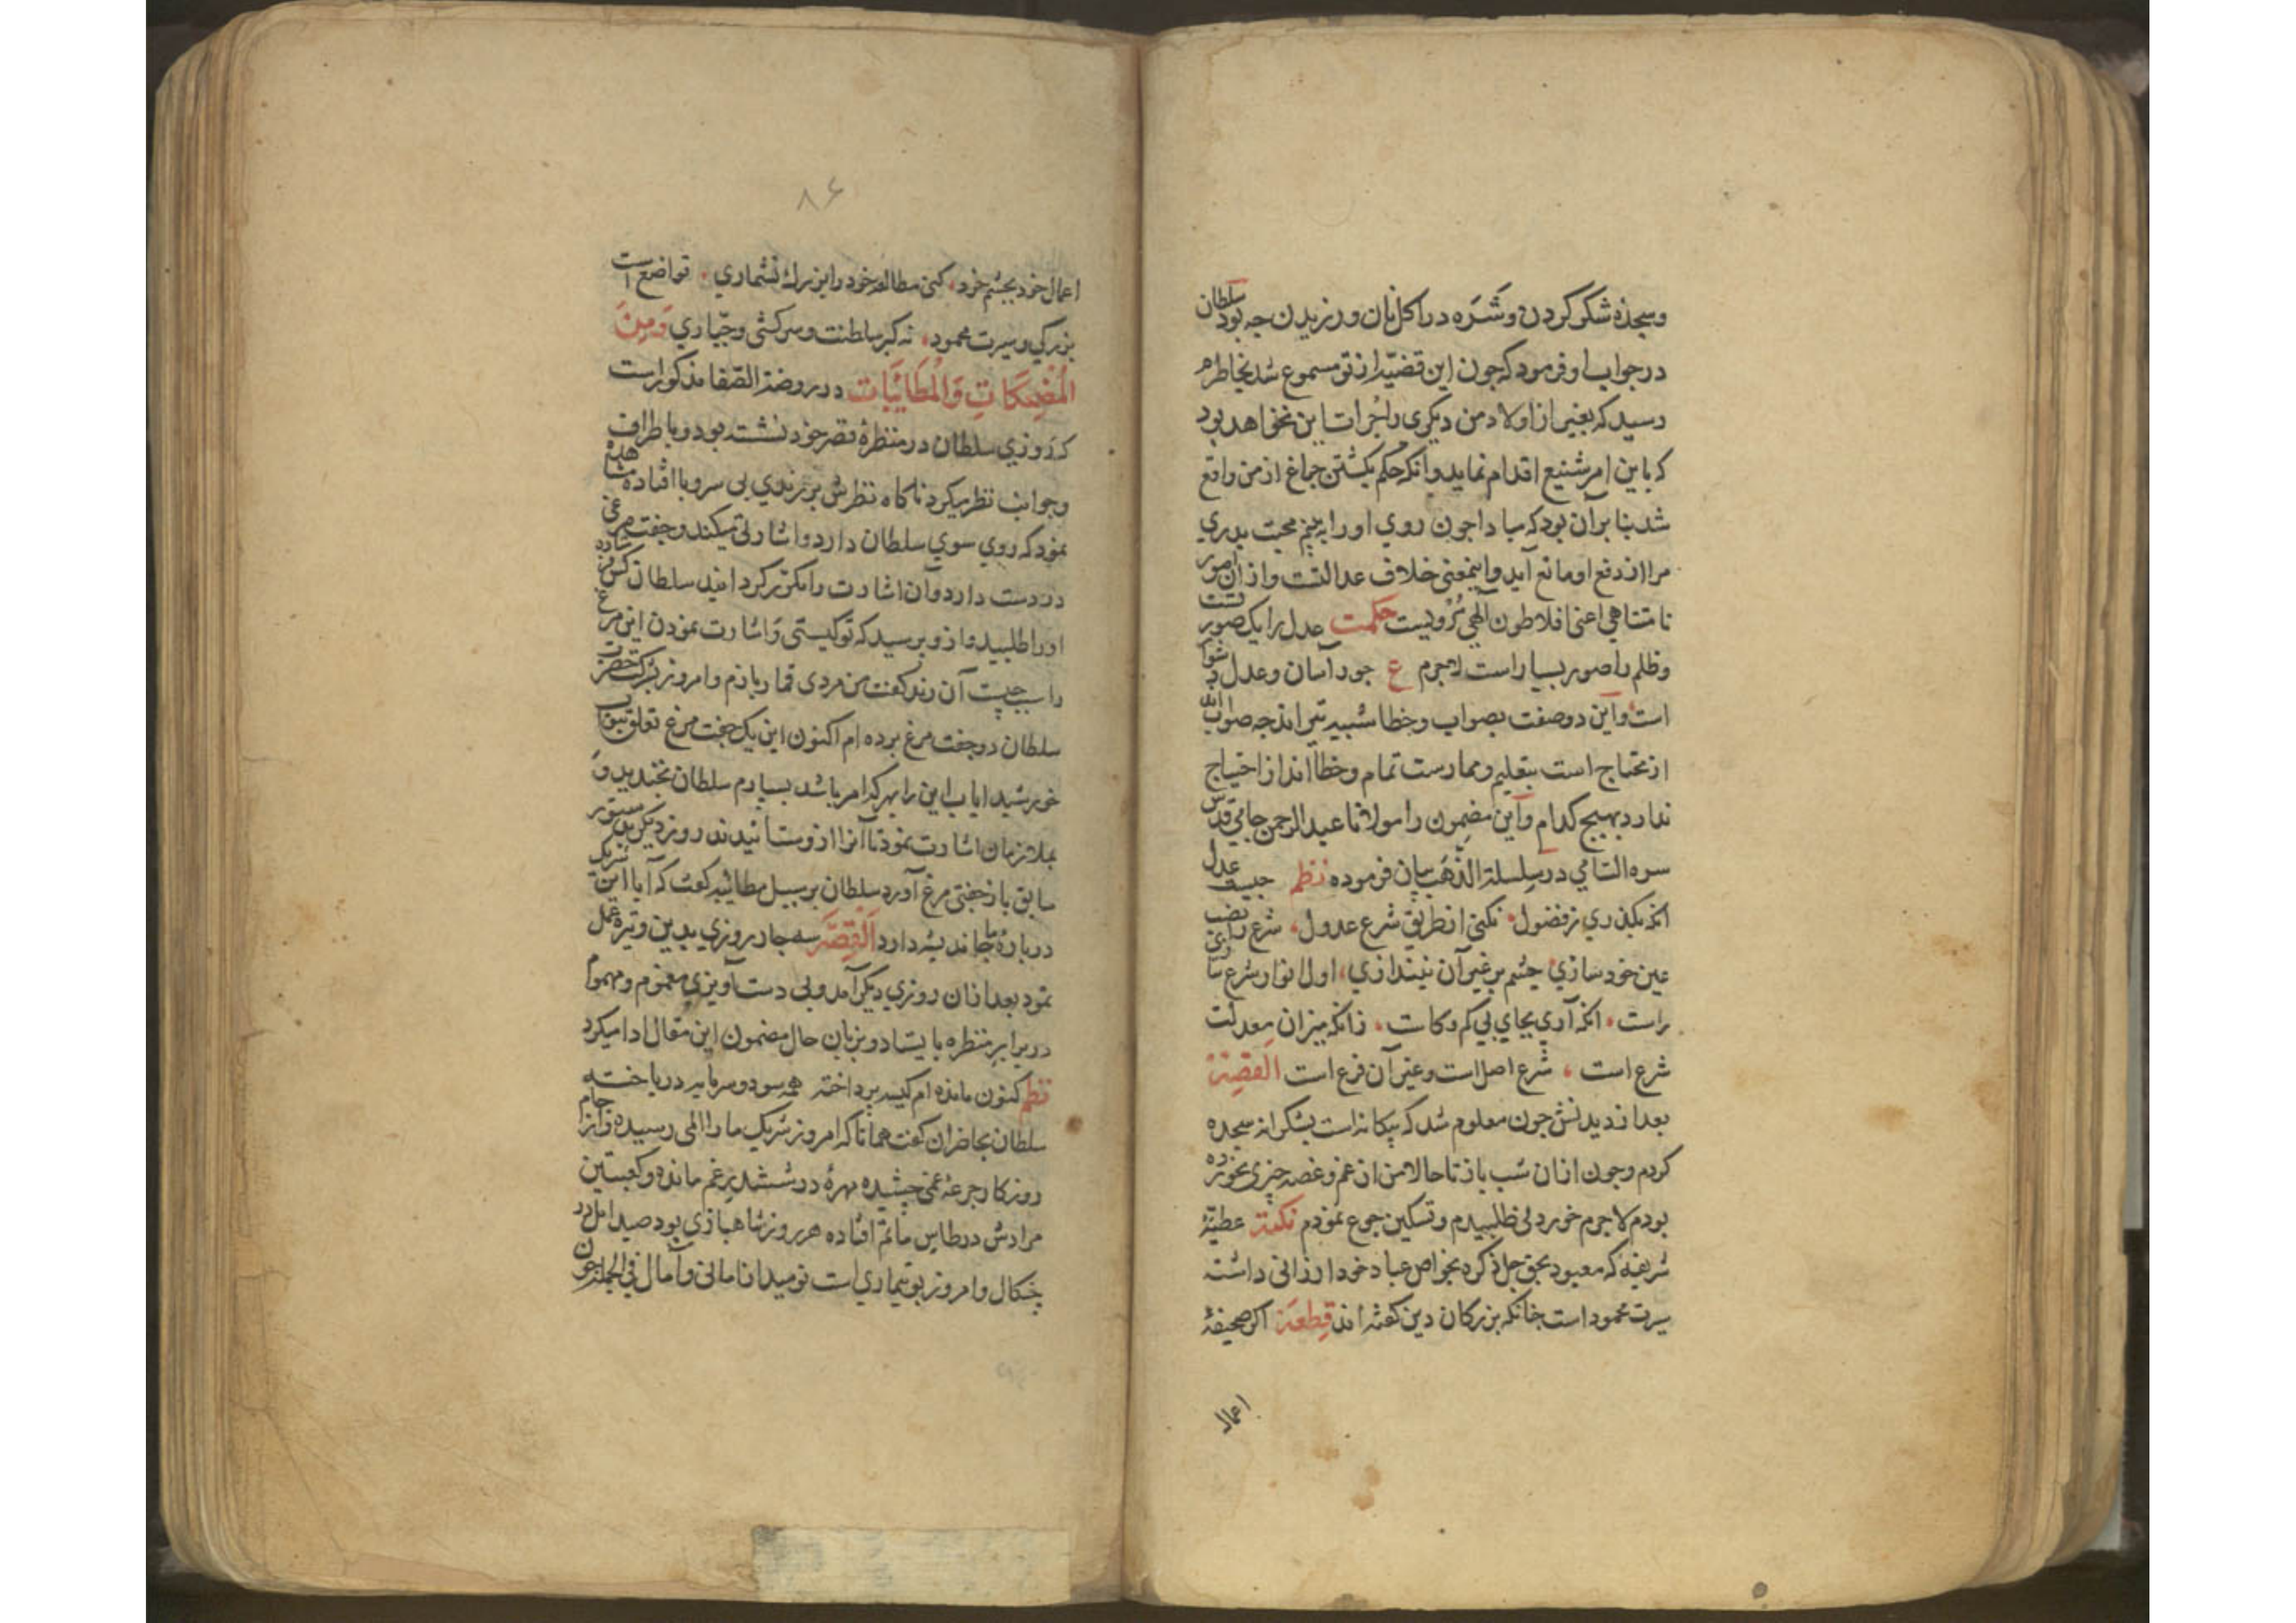 وسجدهٔ شکر کردن و شَرَه در اکل نان ورزیدن چه بود سلطان
در جواب او فرمود که چون این قضیه از تو مسموع شد بخاطرم
رسید که بغیر از اولاد من دیگری را جرات این نخواهد بود
که باین امر شنیع اقدام نماید و آنکه حکم بکشتن چراغ از من واقع
شد بنا بر آن بود که مبادا چون روی او را بینم محبت پدری
مرا از دفع او مانع آید و اینمعنی خلاف عدالتست و از آن صور
نامتناهی اعنی افلاطون الهی مرویست حکمت عدل را یک صورتست
و ظلم را صور بسیار است لاجرم ع جور آسان و عدل دشوار
است و این دو صفت بصواب و خطا شبیه تیر اندچه صواب
از محتاج است بتعلیم و ممارست تمام و خطا انداز احتیاج
ندارد بهیچ کدام و این مضمون را مولانا عبد الرحمن جامی قدس
سره السامی در سلسلة الذهب بیان فرموده نظم چیست عدل
انکه بگذری ز فضول نکنی از طریق شرع عدول شرع را نصب
عین خود سازی چشم بر غیر آن نیندازی اول انوار شرع
راست انکه آری بجای بی کم و کاست زانکه میزان معدلت
شرع است شرع اصل است و غیر آن فرع است القصة
بعد از دیدنش چون معلوم شد که بیکانه است بشکرانه سجده
کردم و چون از آن شب باز تا حالا من از غم و غصه چیزی نخورده
بودم لاجرم خوردنی طلبیدم و تسکین جوع نمودم نکته عطیهٔ
شریفه که معبود بحق جل ذکره بخواص عباد خود ارزانی داشته
سیرت محمود است چنانکه بزرگان دین گفته اند قطعه اکر صحیفهٔ
اعمال
۸۶
اعمال خود بچشم خرد کنی مطالعه خود را بزرک نشماری تواضع است
بزرکی و سیرت محمود نه کبر سلطنت و سرکشی و جبّاری وَمِنَ
المُضحِکَاتِ وَالمُطَایَبَات در روضة الصّفا مذکور است
که روزی سلطان در منظرهٔ قصر خود نشسته بود و باطراف
و جوانب نظر میکرد ناکاه نظرش بر رندی بی سر و پا افتاد مشاهده
نمود که روی سوی سلطان دارد و اشارتی میکند و جفت مرغی
در دست دارد و آن اشارت را مکرر کردانید سلطان کس فرستاده
او را طلبید و از و پرسید که تو کیستی و اشارت نمودن این مرغ
را سبب چیست آن رند کفت من مردی قمار بازم و امروز بشرکت حضرت
سلطان دو جفت مرغ برده ام اکنون این یک جفت مرغ تعلق بنواب
خورشید ایاب این را بهر کدام باشد بسپارم سلطان بخندید و
بملازمان اشارت نمود تا آنرا ازو ستانیدند روز دیگر بدستور
سابق باز جفتی مرغ آورد سلطان بر سبیل مطائبه کفت که آیا این شریک
در بارهٔ ما چه اندیشه دارد القِصّه سه چار روزی بدین وتیره عمل
نمود بعد از آن روزی دیکر آمد و بی دست آویزی مغموم و مهموم
در برابر منظره بایستاد و بزبان حال مضمون این مقال ادا میکرد
نظم کنون مانده ام کیسه پرداخته همه سود و سرمایه درباخته
سلطان بحاضران کفت همانا که امروز شریک ما را المی رسیده و از جام
روزکار جرعهٔ غمی چشیده مهرهٔ در ششدر غم مانده و کعبتین
مرادش در طاس ماتم افتاده هر روز شاهبازی بود صید امل در
چنکال و امروز بوتیماری است نومید از امانی و آمال فی الجمله چون